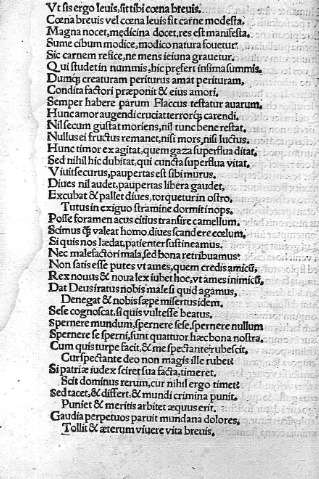 Vt sis ergo leuis, sit tibi cœna breuis.
Cœna breuis vel cœna leuis sit carne modesta.
Magna nocet, medicina docet, res est manifesta.
Sume cibum modice, modico natura fouetur.
Sic carnem refice, ne mens ieiuna grauetur.
Qui studet in nummis, hic præfert infima summis.
Dumqȝ creaturam periturus amat perituram.
Condita factori præponit & eius amori.
Semper habere parum Flaccus testatur auarum.
Hunc amor augendi cruciat terrorqȝ carendi.
Nil secum gustat moriens, nil tunc bene restat.
Nullus ei fructus remanet, nisi mors, nisi luctus.
Hunc timor exagitat, quem gaza superflua ditat.
Sed nihil hic dubitat, qui cuncta superflua vitat.
Viuit securus, paupertas est sibi murus.
Diues nil audet, paupertas libera gaudet.
Excubat & pallet diues, torquetur in ostro,
Tutus in exiguo stramine dormit inops.
Posse foramen acus citius transire camellum.
Scimus qȝ valeat homo diues scandere cœlum.
Si quis nos lædat, patienter sustineamus.
Nec malefactori mala, sed bona retribuamus.
Non satis esse putes vt ames, quem credis amicũ,
Rex nouus & noua lex iubet hoc, vt ames inimicũ,
Dat Deus iratus nobis male si quid agamus,
Denegat & nobis sæpe misertus idem.
Sese cognoscat, si quis vult esse beatus.
Spernere mundum, spernere sese, spernere nullum
Spernere se sperni, sunt quattuor hæc bona nostra.
Cum quis turpe facit, & me spectante rubescit,
Cur spectante deo non magis ille rubet?
Si patriæ iudex sciret sua facta, timeret.
Scit dominus rerum, cur nihil ergo timet?
Sed tacet, & differt, & mundi crimina punit.
Puniet & meritis arbiter æquus erit.
Gaudia perpetuos pariunt mundana dolores,
Tollit & æternum viuere vita breuis.